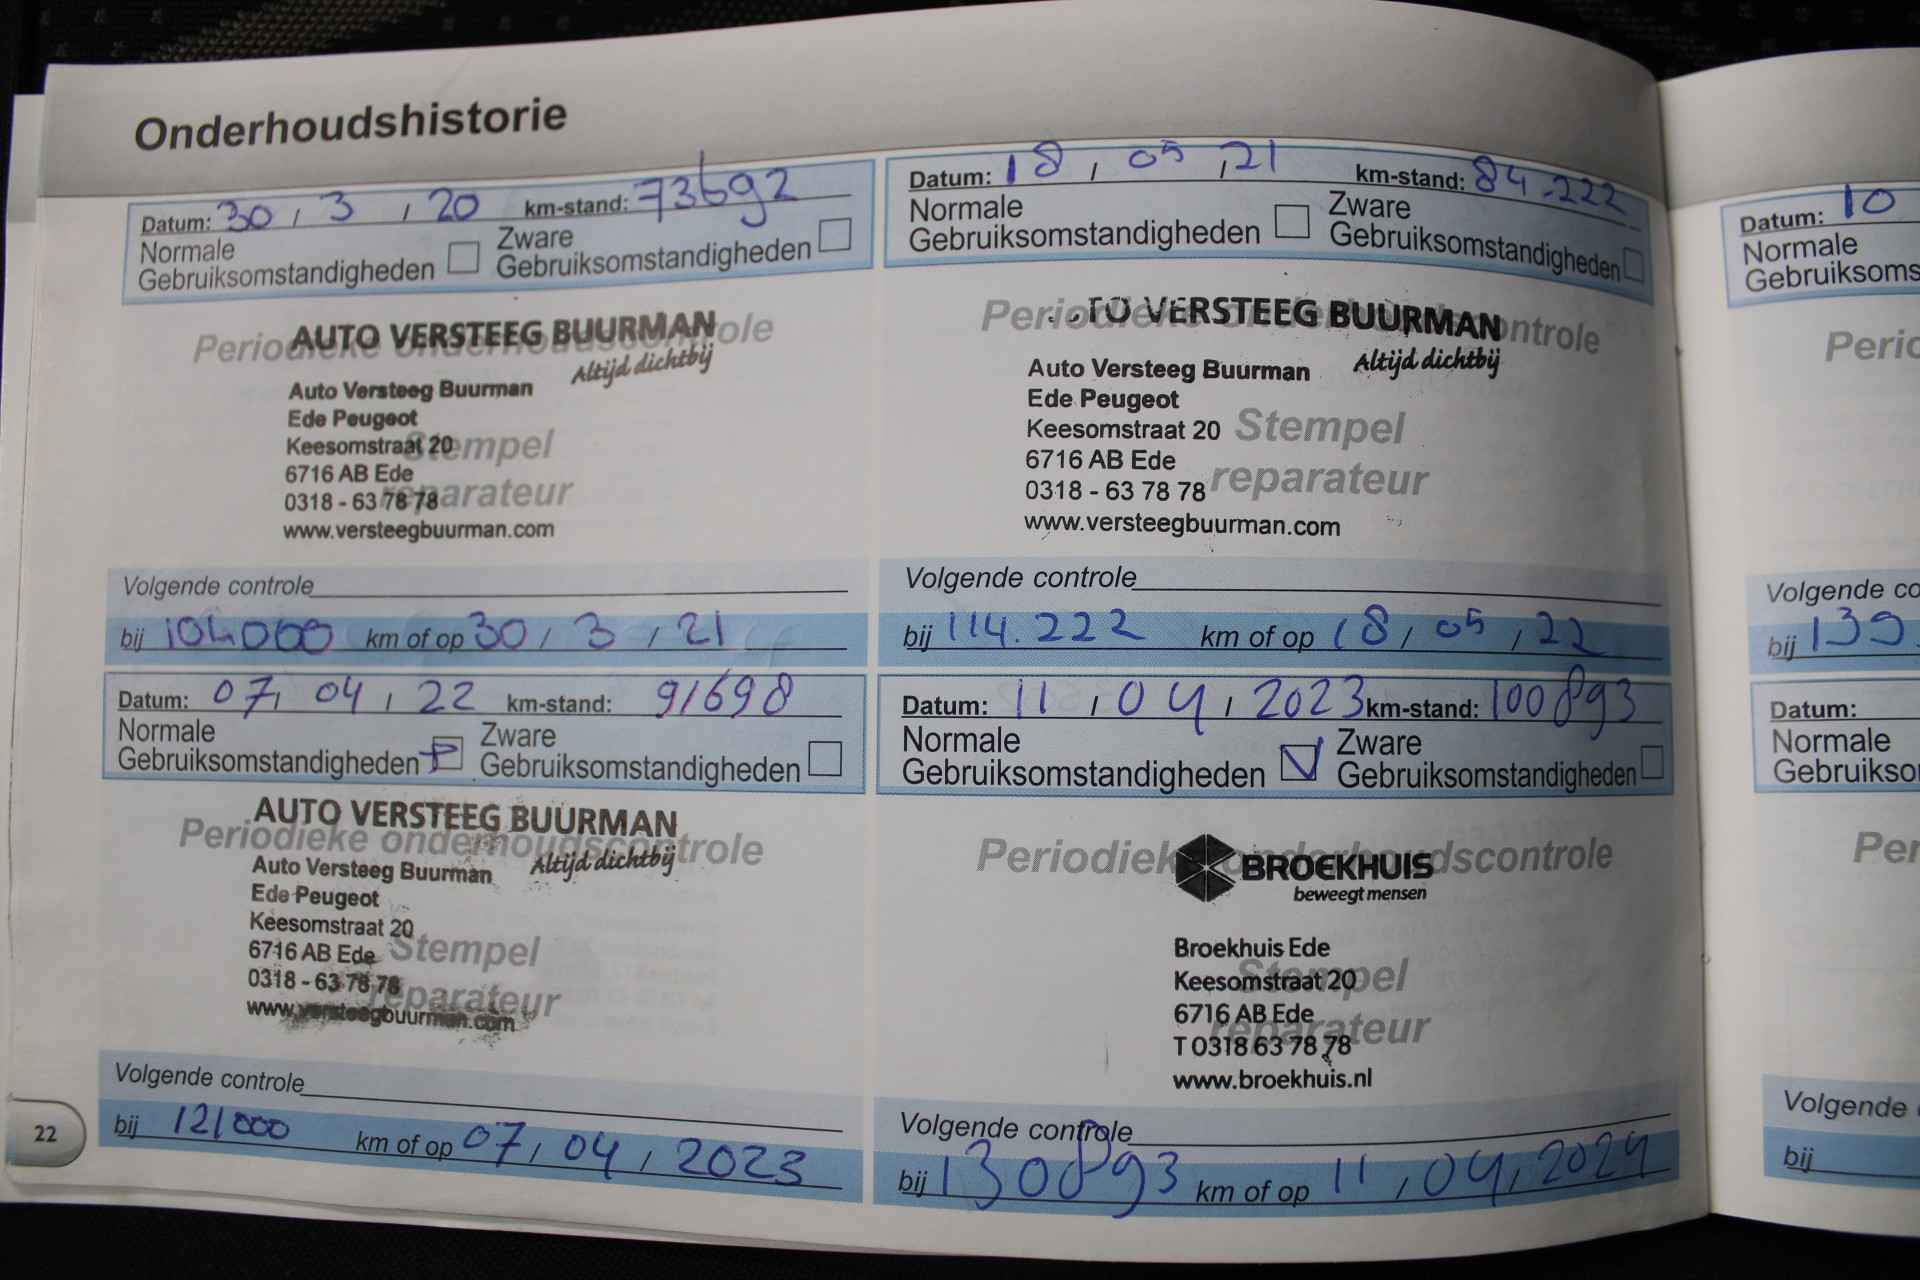 Onderhoudshistorie
Datum: 30 / 3 / 20 km-stand: 73692
Normale
Gebruiksomstandigheden
Zware
Gebruiksomstandigheden
Periodieke onderhoudscontrole
AUTO VERSTEEG BUURMAN
Altijd dichtbij
Auto Versteeg Buurman
Ede Peugeot
Keesomstraat 20
6716 AB Ede
0318 - 63 78 78
www.versteegbuurman.com
Stempel
reparateur
Volgende controle
bij 104000 km of op 30 / 3 / 21
Datum: 18 / 05 / 21 km-stand: 84.222
Normale
Gebruiksomstandigheden
Zware
Gebruiksomstandigheden
Periodieke onderhoudscontrole
TO VERSTEEG BUURMAN
Altijd dichtbij
Auto Versteeg Buurman
Ede Peugeot
Keesomstraat 20
6716 AB Ede
0318 - 63 78 78
www.versteegbuurman.com
Stempel
reparateur
Volgende controle
bij 114.222 km of op 18 / 05 / 22
Datum: 07 / 04 / 22 km-stand: 91698
Normale
Gebruiksomstandigheden
Zware
Gebruiksomstandigheden
Periodieke onderhoudscontrole
AUTO VERSTEEG BUURMAN
Altijd dichtbij
Auto Versteeg Buurman
Ede Peugeot
Keesomstraat 20
6716 AB Ede
0318 - 63 78 78
www.versteegbuurman.com
Stempel
reparateur
Volgende controle
bij 121000 km of op 07 / 04 / 2023
Datum: 11 / 04 / 2023 km-stand: 100893
Normale
Gebruiksomstandigheden
Zware
Gebruiksomstandigheden
Periodieke onderhoudscontrole
BROEKHUIS
beweegt mensen
Broekhuis Ede
Keesomstraat 20
6716 AB Ede
T 0318 63 78 78
www.broekhuis.nl
Stempel
reparateur
Volgende controle
bij 130893 km of op 11 / 04 / 2024
22
Datum: 10
Normale
Gebruiksoms
Perio
Volgende co
bij 139
Datum:
Normale
Gebruikso
Per
Volgende
bij